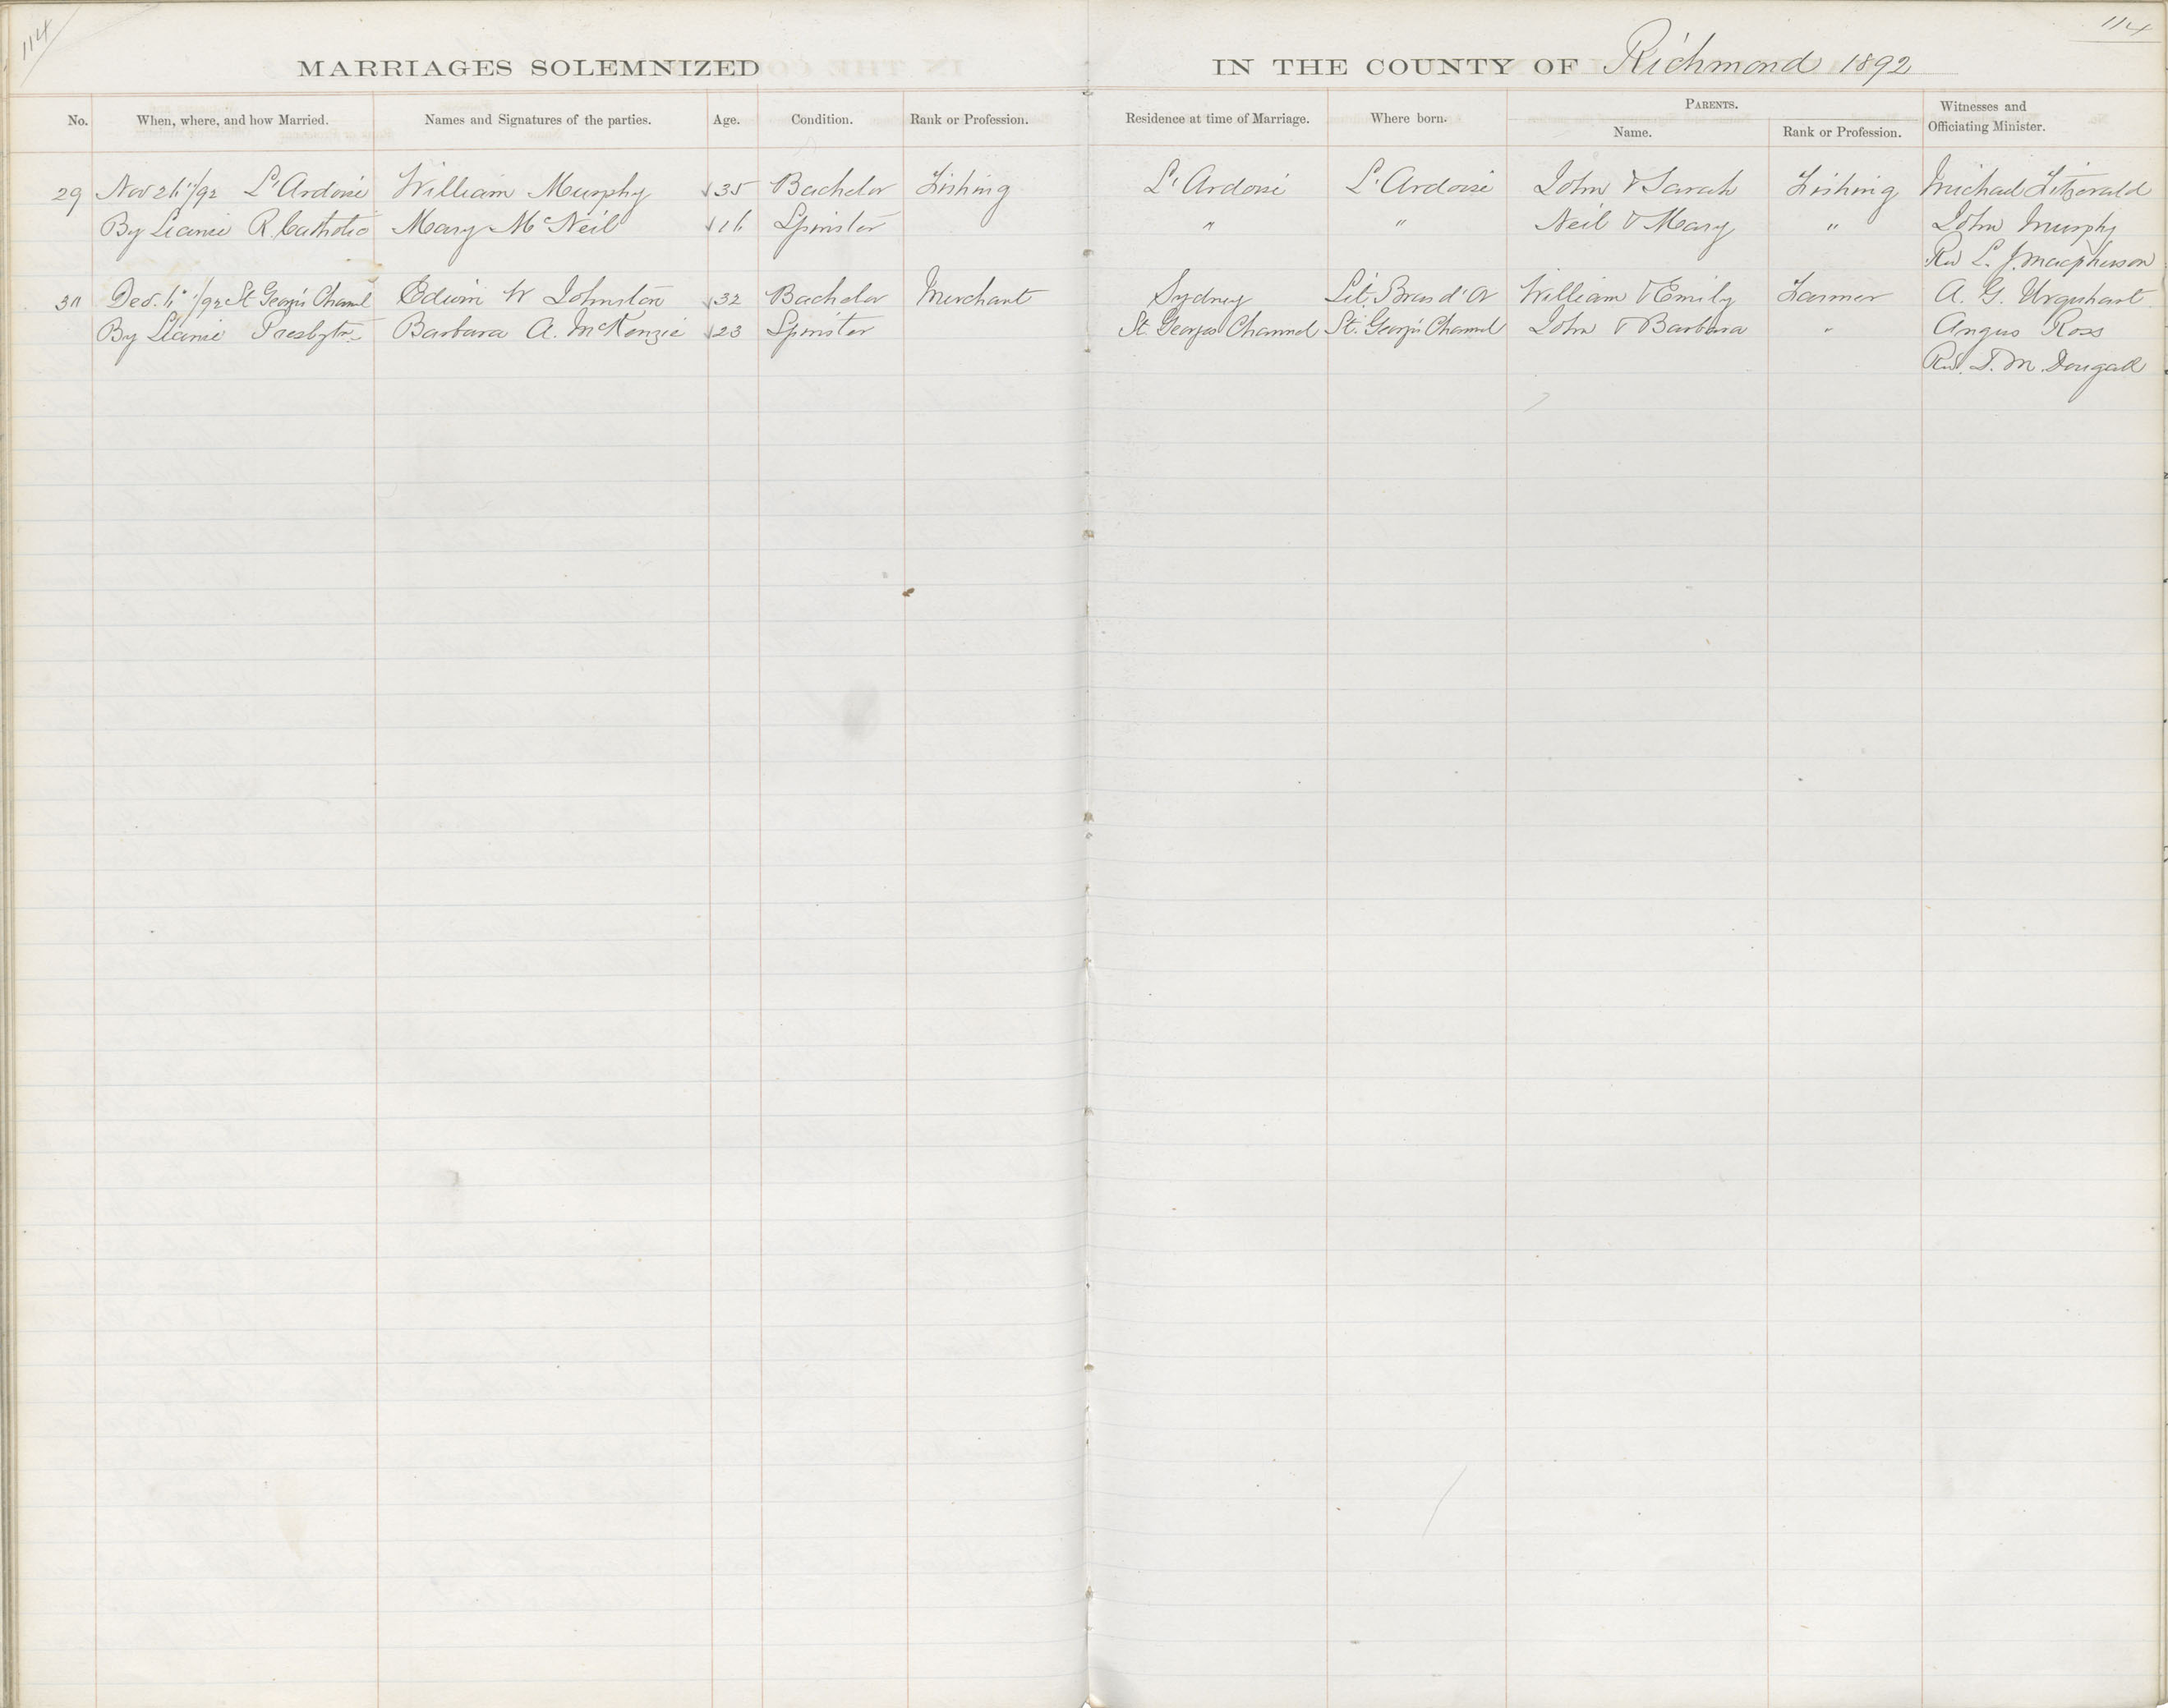 114
114
MARRIAGES SOLEMNIZED IN THE COUNTY OF Richmond 1892
No. When, where, and how Married. Names and Signatures of the parties. Age. Condition. Rank or Profession. Residence at time of Marriage. Where born. PARENTS. Name. Rank or Profession. Witnesses and Officiating Minister.
29 Nov /92 L'Ardoise William Murphy √35 Bachelor Fishing L'Ardoise L'Ardoise John & Sarah Fishing Michael Fitzerald
By Licence R. Catholic Mary McNeil √16 Spinster " " Neil & Mary " John Murphy
Rev L. J. Macpherson
30 Dec. /92 St George's Channel Edwin W Johnston √32 Bachelor Merchant Sydney Lit. Bras d'Or William & Emily Farmer A. G. Urquhart
By Licence Presbytn Barbara A. McKenzie √23 Spinster St. Georges Channel St. George's Channel John & Barbara " Angus Ross
Rev. D. M. Dougall